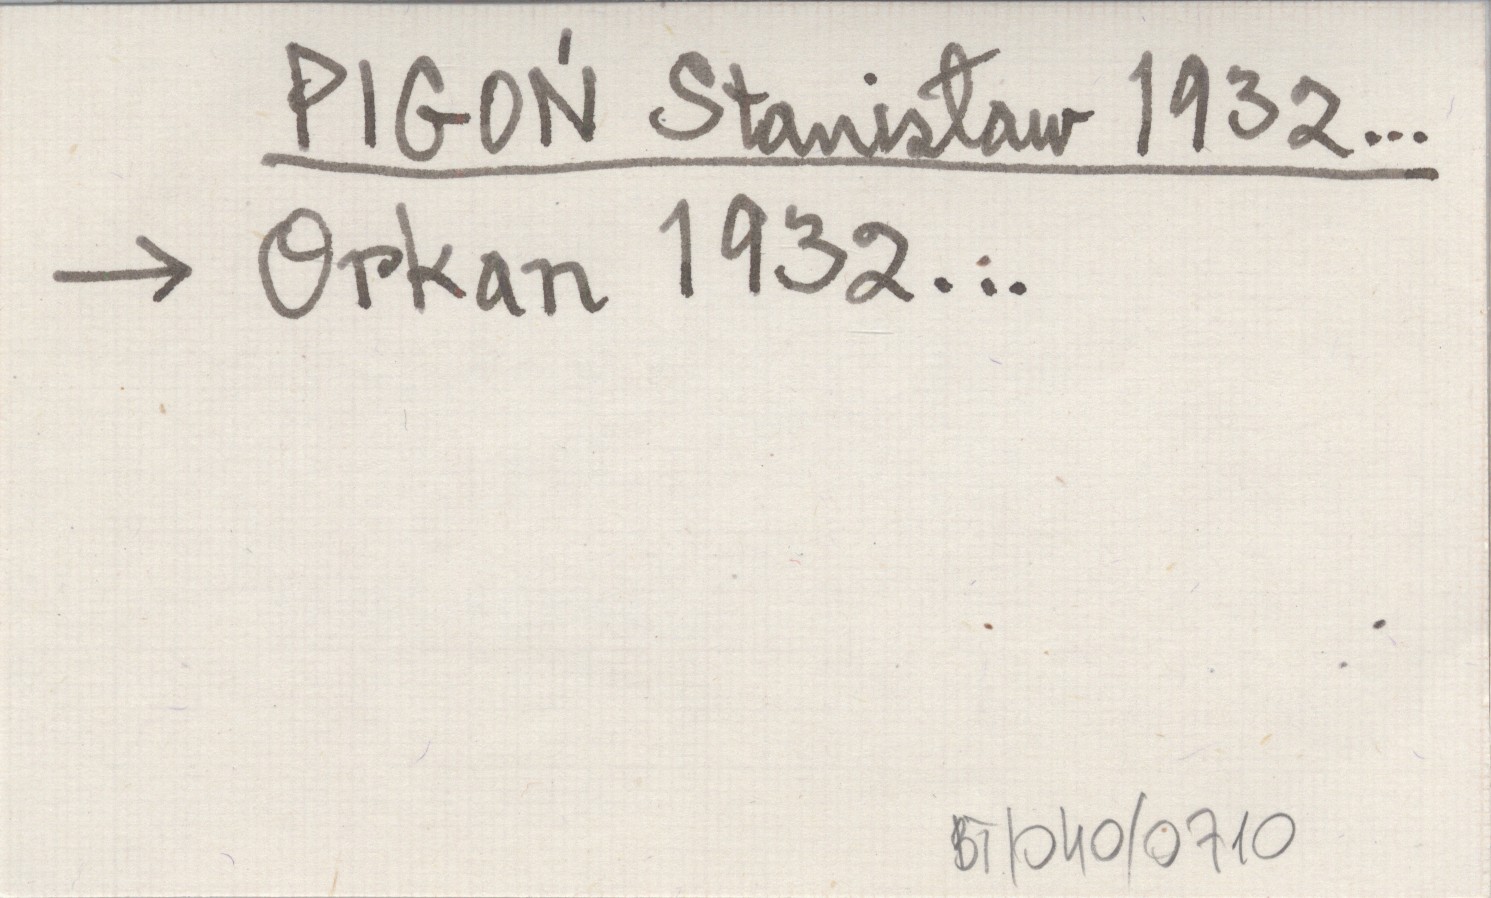 PIGOŃ Stanisław 1932...
→ Orkan 1932...
BT/040/0710